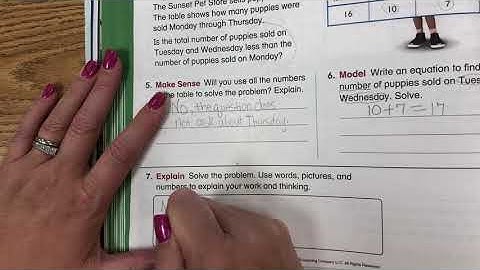 The Sunset Pet Store sells
The table shows how many puppies were
sold Monday through Thursday.
Is the total number of puppies sold on
Tuesday and Wednesday less than the
number of puppies sold on Monday?
16 10 7
5. Make Sense Will you use all the numbers
table to solve the problem? Explain.
No, the question does
not ask about Thursday.
6. Model Write an equation to find
number of puppies sold on Tues
Wednesday. Solve.
10+7=17
7. Explain Solve the problem. Use words, pictures, and
numbers to explain your work and thinking.
N
Learning Company LLC. All Rights Reserved.